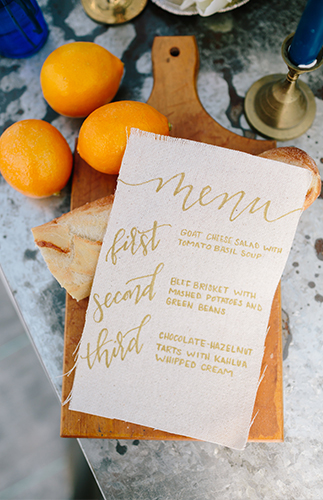 menu
first
GOAT CHEESE SALAD WITH
TOMATO BASIL SOUP
second
BEEF BRISKET WITH
MASHED POTATOES AND
GREEN BEANS
third
CHOCOLATE-HAZELNUT
TARTS WITH KAHLUA
WHIPPED CREAM